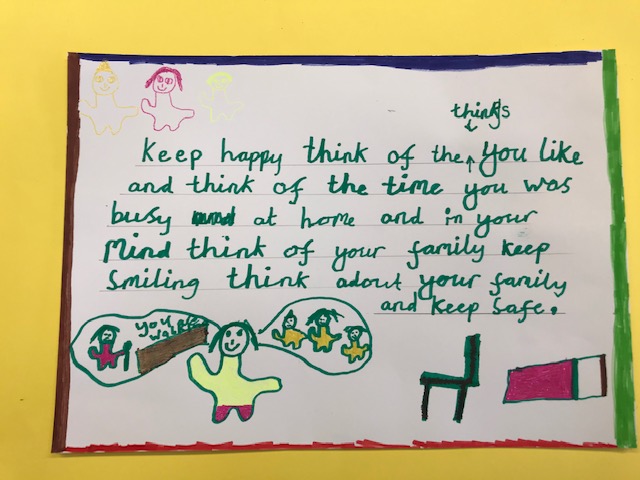 things
Keep happy think of the you like
and think of the time you was
busy and at home and in your
Mind think of your family keep
Smiling think adout your family
and keep safe.
you